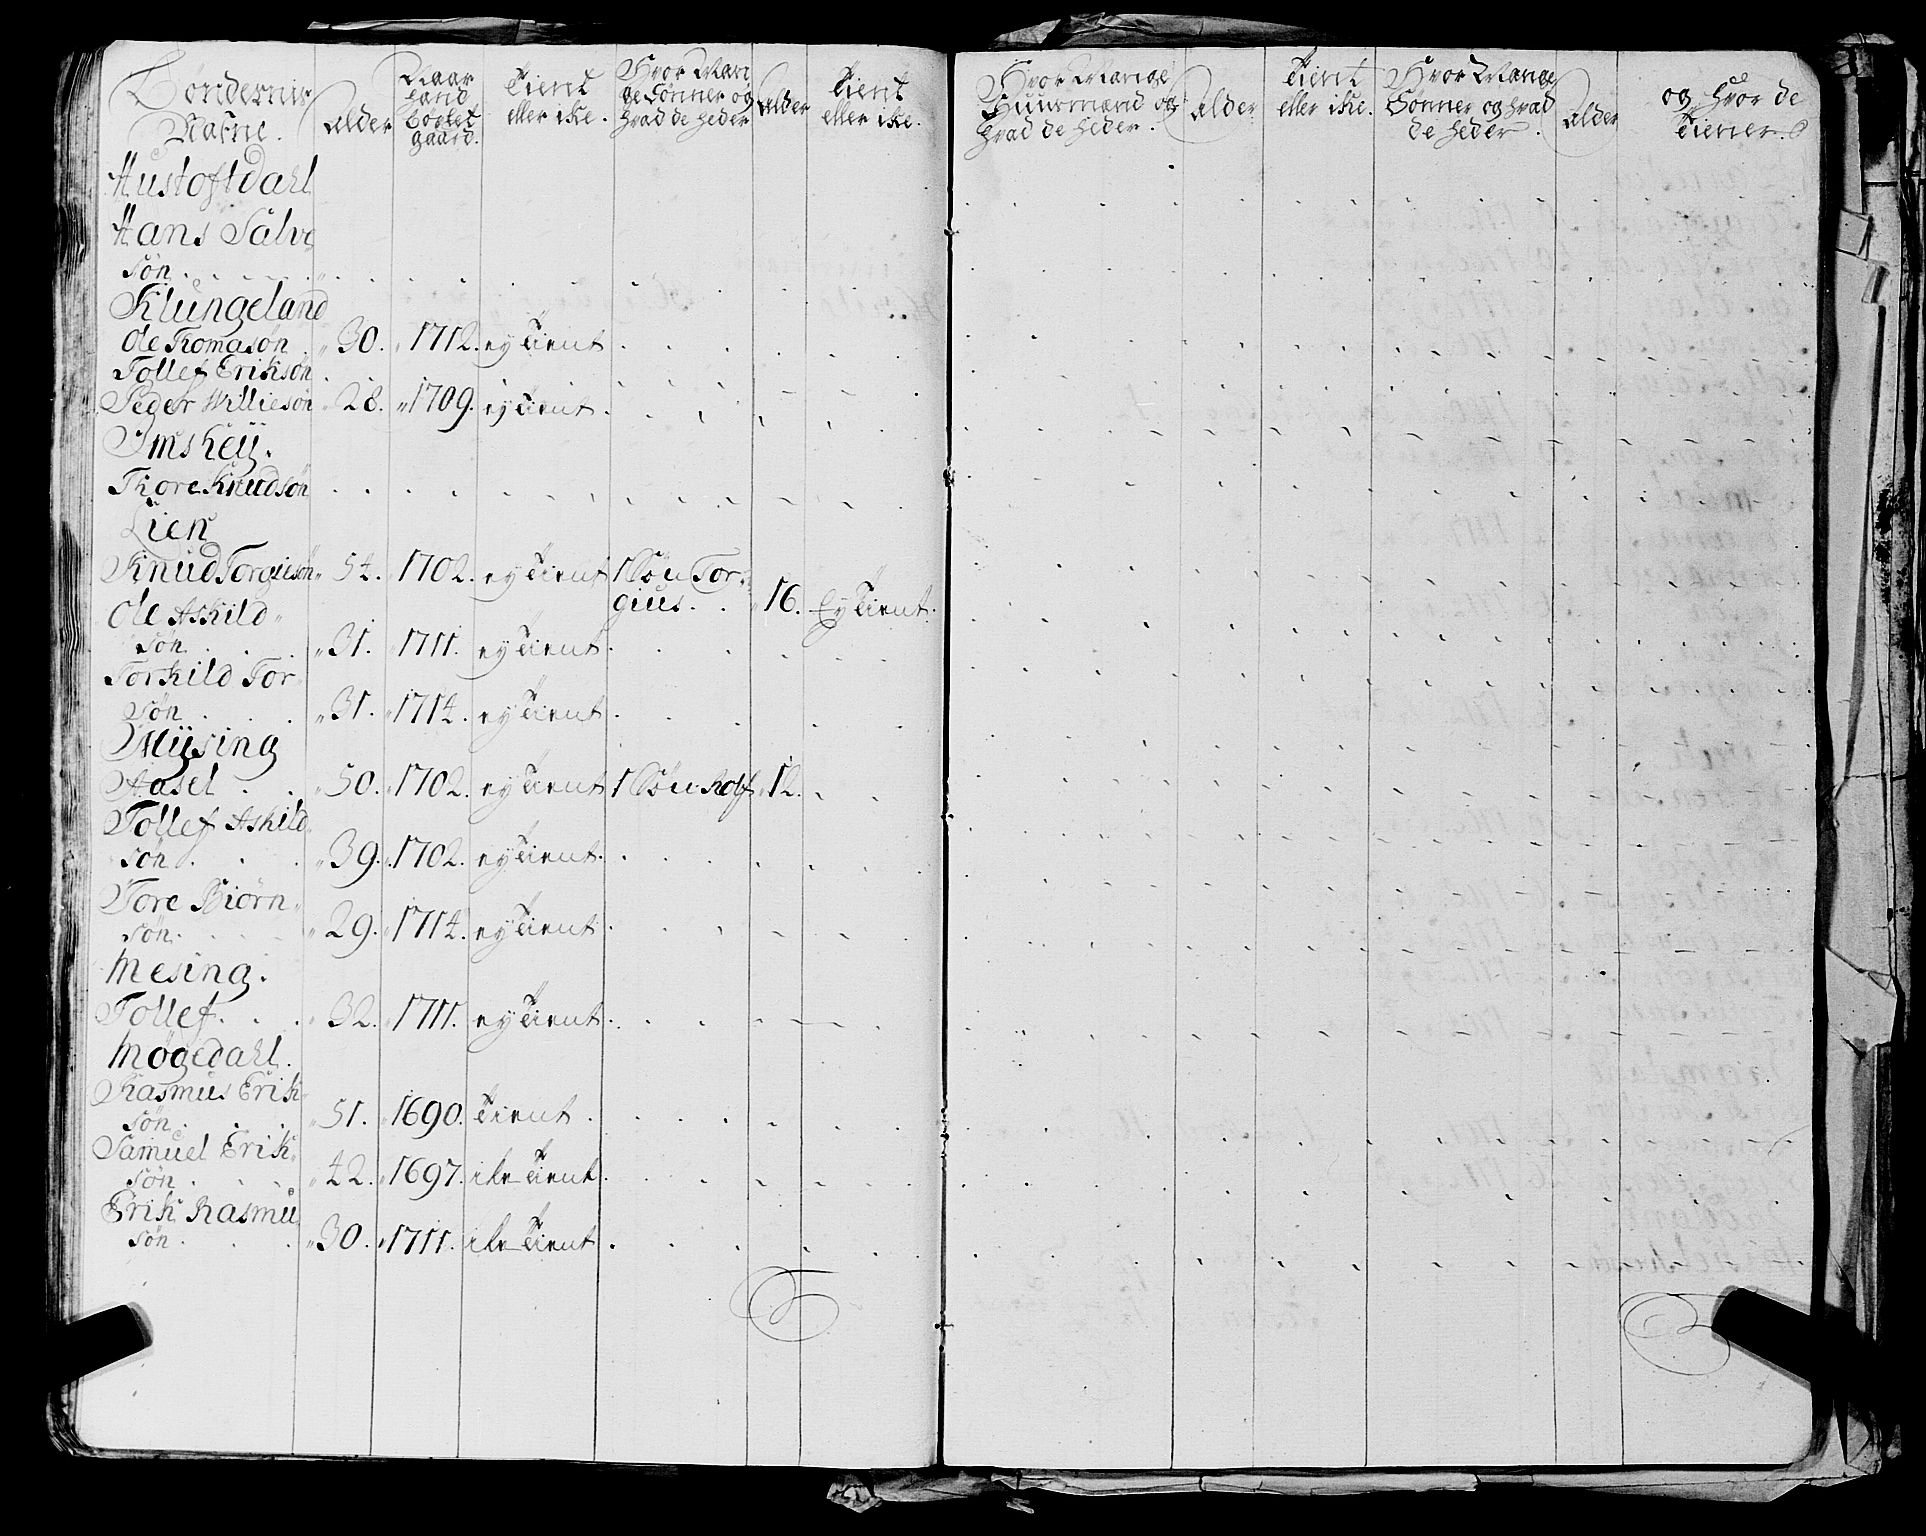 Bøndernis Nafne. Alder Naar hand bøxlet gaard. Tient eller ike. Hvor Man ge Sønner og hvad de heder Alder Tient eller ike. Hvor Mange Huusmænd og hvad de heder. Alder Tient eller ike. Hvor Mange Sønner og hvad de heder. Alder og hvor de tiener.
Hustoftdahl
Hans Salve
søn
Klungeland
Ole Thomasøn 30. 1712. ey tient
Tollef Eriksøn
Peder Williesøn 28. 1709. ey tient
Imsheÿ.
Thore Knudsøn
Lien
Knud Torgiusøn 54. 1702. ey tient 1 Søn Tor
gius. 16. Ey tient.
Ole Askild
søn 31. 1711. ey tient
Torkild Tor
søn 31. 1714. ey tient
Müsing
Aasel 50. 1702. ey tient 1 Søn Rolf 12.
Tollef Askild
søn 39. 1702. ey tient.
Tore Biørn
søn 29. 1714. ey tient
Mesing.
Tollef 32. 1711. ey tient
Møgedahl.
Rasmus Erik
søn 51. 1690. tient
Samuel Erik
søn 42. 1697. ike tient
Erik Rasmu
søn 30. 1711. ike tient